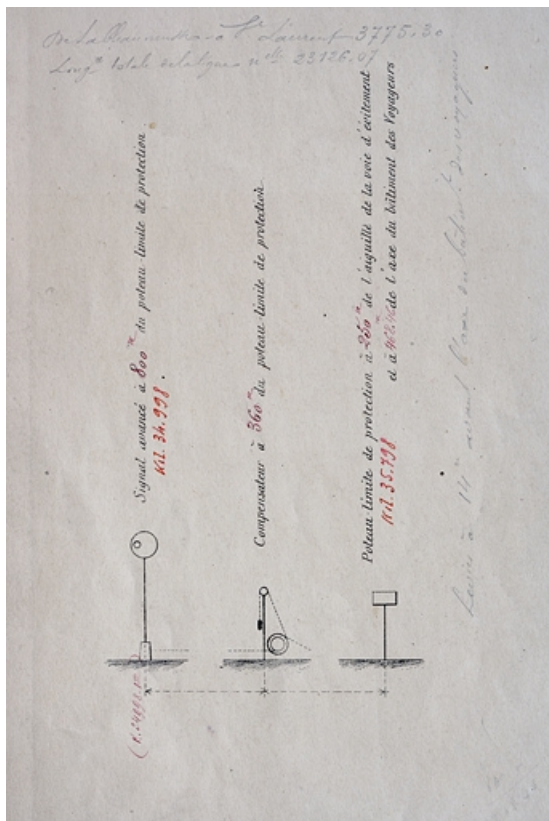 St Laurent 3775.30
Long.r totale de la ligne 23126.07
Signal avancé à 800m du poteau-limite de protection
Kil. 34.998
Compensateur à 360m du poteau-limite de protection
Poteau-limite de protection à 250m de l'aiguille de la voie d'évitement
et à de l'axe du bâtiment des Voyageurs
Kil. 35.798
à 14m avant l'axe du des voyageurs